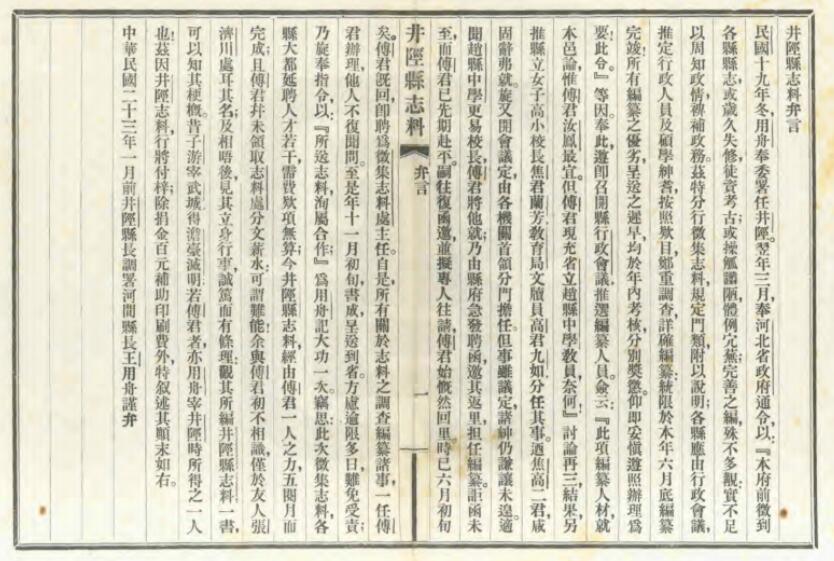 井陘縣志料弁言
民國十九年冬，用舟奉委署任井陘。翌年三月，奉河北省政府通令，以：『本府前徵到
各縣縣志，或歲久失修，徒資考古；或操觚譾陋，體例宂蕪；完善之編，殊不多覯，實不足
以周知政情，裨補政務。茲特分行徵集志料，規定門類，附以說明；各縣應由行政會議，
推定行政人員及碩學紳耆，按照欵目，鄭重調查，詳確編纂，統限於本年六月底編纂
完竣，所有編纂之優劣，呈送之遲早，均於年內考核，分別獎懲。仰即妥愼遵照辦理爲
要！此令。』等因。奉此，遵即召開縣行政會議，推選編纂人員。僉云：『此項編纂人材，就
本邑論，惟傅君汝鳳最宜。但傅君現充省立趙縣中學教員，奈何！』討論再三，結果另
推縣立女子高小校長焦君蘭芳，教育局文牘員高君九如分任其事。迺焦高二君咸
固辭弗就。旋又開會議定，由各機關首領分門擔任。但事雖議定，諸紳仍謙讓未遑。適
聞趙縣中學更易校長，傅君將他就，乃由縣府急發聘函，邀其返里，担任編纂。詎函未
至，而傅君已先期赴平。嗣往復函邀，並擬專人往請，傅君始慨然回里，時已六月初旬
井陘縣志料 弁言 一
矣。傅君既回，即聘爲徵集志料處主任。自是所有關於志料之調查編纂諸事，一任傅
君辦理，他人不復聞問。至是年十一月初旬，書成，呈送到省。方慮逾限多日，難免受責；
乃旋奉指令，以：『所送志料，洵屬合作，』爲用舟記大功一次。竊思此次徵集志料，各
縣大都延聘人才若干，需費欵項無算；今井陘縣志料，經由傅君一人之力，五閱月而
完成；且傅君幷未領取志料處分文薪水，可謂難能！余與傅君初不相識，僅於友人張
濟川處耳其名；及相晤後，見其立身行事，誠篤而有條理；觀其所編井陘縣志料一書，
可以知其梗槪。昔子游宰武城，得澹臺滅明；若傅君者，亦用舟宰井陘時所得之一人
也！茲因井陘志料，行將付梓，除捐金百元補助印刷費外，特叙述其顚末如右。
中華民國二十三年一月前井陘縣長調署河間縣長王用舟謹弁